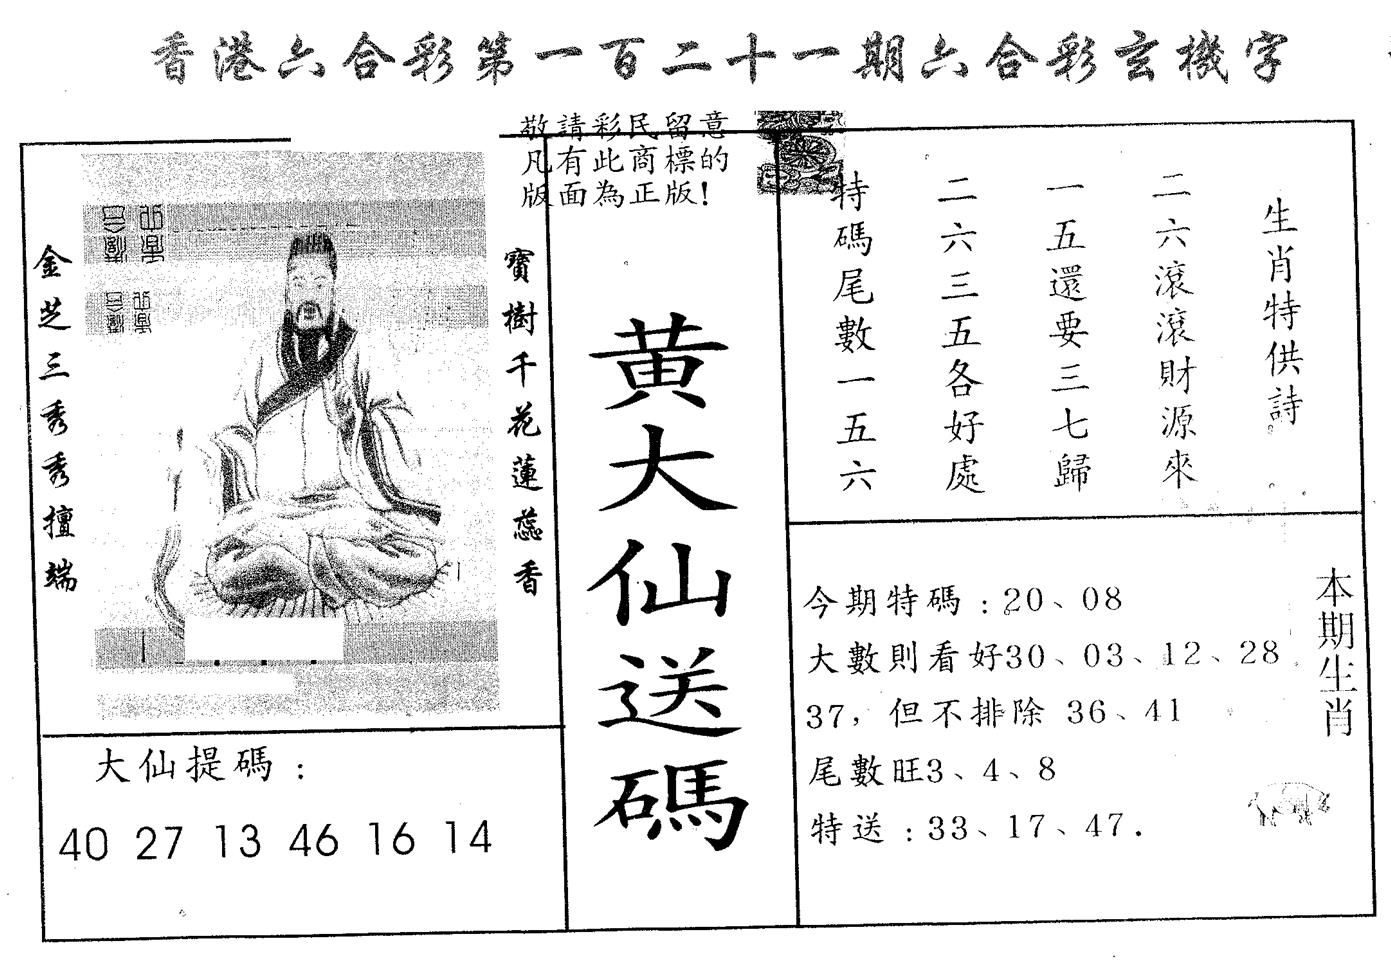 香港六合彩第一百二十一期六合彩玄機字
敬請彩民留意
凡有此商標的
版面為正版!
寶樹千花蓮蕊香
金芝三秀秀擅端
黃大仙送碼
生肖特供詩
二六滾滾財源來
一五還要三七歸
二六三五各好處
特碼尾數一五六
本期生肖
今期特碼:20、08
大數則看好30、03、12、28
37，但不排除 36、41
尾數旺3、4、8
特送:33、17、47.
大仙提碼:
40 27 13 46 16 14